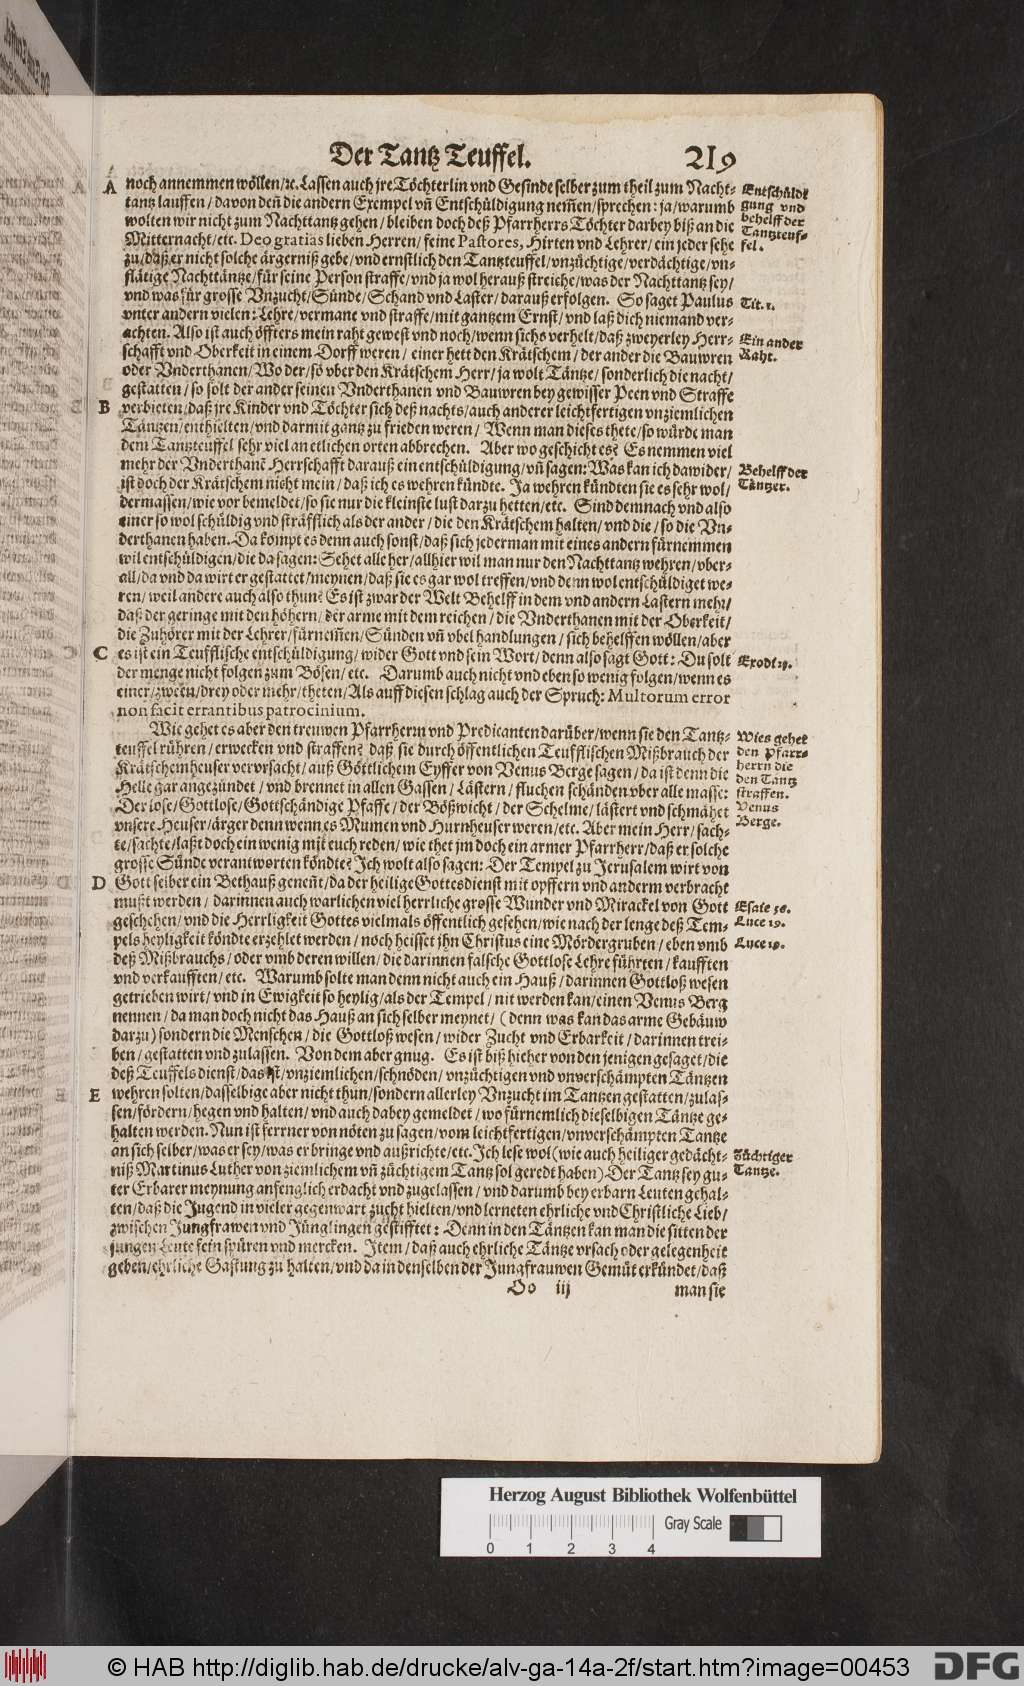 Der Tantz Teuffel. 219
A noch annemmen wöllen/ꝛc. Lassen auch jre Töchterlin vnd Gesinde selber zum theil zum Nacht⸗
tantz lauffen/davon deñ die andern Exempel vñ Entschüldigung nem̃en/sprechen: ja/warumb
wolten wir nicht zum Nachttantz gehen/bleiben doch deß Pfarrherrs Töchter darbey biß an die
Mitternacht/etc. Deo gratias lieben Herren/feine Pastores, Hirten vnd Lehrer/ein jeder sehe
zu/daß er nicht solche ärgerniß gebe/vnd ernstlich den Tantzteuffel/vnzüchtige/verdächtige/vn⸗
flätige Nachttäntze/für seine Person straffe/vnd ja wol herauß streiche/was der Nachttantz sey/
vnd was für grosse Vnzucht/Sünde/Schand vnd Laster/darauß erfolgen. So saget Paulus
vnter andern vielen: Lehre/vermane vnd straffe/mit gantzem Ernst/vnd laß dich niemand ver⸗
achten. Also ist auch öffters mein raht gewest vnd noch/wenn sichs verhelt/daß zweyerley Herr⸗
schafft vnd Oberkeit in einem Dorff weren/einer hett den Krätschem/der ander die Bauwren
oder Vnderthanen/Wo der/so vber den Krätschem Herr/ja wolt Täntze/sonderlich die nacht/
gestatten/so solt der ander seinen Vnderthanen vnd Bauwren bey gewisser Peen vnd Straffe
B verbieten/daß jre Kinder vnd Töchter sich deß nachts/auch anderer leichtfertigen vnziemlichen
Täntzen/enthielten/vnd darmit gantz zu frieden weren/Wenn man dieses thete/so würde man
dem Tantzteuffel sehr viel an etlichen orten abbrechen. Aber wo geschicht es? Es nemmen viel
mehr der Vnderthanẽ Herrschafft darauß ein entschüldigung/vñ sagen: Was kan ich dawider/
ist doch der Krätschem nicht mein/daß ich es wehren kündte. Ja wehren kündten sie es sehr wol/
dermassen/wie vor bemeldet/so sie nur die kleinste lust darzu hetten/etc. Sind demnach vnd also
einer so wol schüldig vnd sträfflich als der ander/die den Krätschem halten/vnd die/so die Vn⸗
derthanen haben. Da kompt es denn auch sonst/daß sich jederman mit eines andern fürnemmen
wil entschüldigen/die da sagen: Sehet alle her/allhier wil man nur den Nachttantz wehren/vber⸗
all/da vnd da wirt er gestattet/meynen/daß sie es gar wol treffen/vnd denn wol entschüldiget we⸗
ren/weil andere auch also thun? Es ist zwar der Welt Behelff in dem vnd andern Lastern mehr/
daß der geringe mit den höhern/der arme mit dem reichen/die Vnderthanen mit der Oberkeit/
die Zuhörer mit der Lehrer/fürnem̃en/Sünden vñ vbel handlungen/sich behelffen wöllen/aber
C es ist ein Teufflische entschüldigung/wider Gott vnd sein Wort/denn also sagt Gott: Du solt
der menge nicht folgen zum Bösen/etc. Darumb auch nicht vnd eben so wenig folgen/wenn es
einer/zween/drey oder mehr/theten/Als auff diesen schlag auch der Spruch: Multorum error
non facit errantibus patrocinium.
Wie gehet es aber den treuwen Pfarrherrn vnd Predicanten darüber/wenn sie den Tantz⸗
teuffel rühren/erwecken vnd straffen? daß sie durch öffentlichen Teufflischen Mißbrauch der
Krätschemheuser vervrsacht/auß Göttlichem Eyffer von Venus Berge sagen/da ist denn die
Helle gar angezündet/vnd brennet in allen Gassen/Lästern/fluchen schänden vber alle masse:
Der lose/Gottlose/Gottschändige Pfaffe/der Bößwicht/der Schelme/lästert vnd schmähet
vnsere Heuser/ärger denn wenn es Mumen vnd Hurnheuser weren/etc. Aber mein Herr/sach⸗
te/sachte/laßt doch ein wenig mit euch reden/wie thet jm doch ein armer Pfarrherr/daß er solche
grosse Sünde verantworten köndte? Ich wolt also sagen: Der Tempel zu Jerusalem wirt von
D Gott selber ein Bethauß geneñt/da der heilige Gottesdienst mit opffern vnd anderm verbracht
mußt werden/darinnen auch warlichen viel herrliche grosse Wunder vnd Mirackel von Gott
geschehen/vnd die Herrligkeit Gottes vielmals öffentlich gesehen/wie nach der lenge deß Tem⸗
pels heyligkeit köndte erzehlet werden/noch heisset jhn Christus eine Mördergruben/eben vmb
deß Mißbrauchs/oder vmb deren willen/die darinnen falsche Gottlose Lehre führten/kaufften
vnd verkaufften/etc. Warumb solte man denn nicht auch ein Hauß/darinnen Gottloß wesen
getrieben wirt/vnd in Ewigkeit so heylig/als der Tempel/nit werden kan/einen Venus Berg
nennen/da man doch nicht das Hauß an sich selber meynet/(denn was kan das arme Gebäuw
darzu) sondern die Menschen/die Gottloß wesen/wider Zucht vnd Erbarkeit/darinnen trei⸗
ben/gestatten vnd zulassen. Von dem aber gnug. Es ist biß hieher von den jenigen gesaget/die
deß Teuffels dienst/das ist/vnziemlichen/schnöden/vnzüchtigen vnd vnverschämpten Täntzen
E wehren solten/dasselbige aber nicht thun/sondern allerley Vnzucht im Tantzen gestatten/zulas⸗
sen/fördern/hegen vnd halten/vnd auch dabey gemeldet/wo fürnemlich dieselbigen Täntze ge⸗
halten werden. Nun ist ferrner von nöten zu sagen/vom leichtfertigen/vnverschämpten Tantze
an sich selber/was er sey/was er bringe vnd außrichte/etc. Ich lese wol (wie auch heiliger gedächt⸗
niß Martinus Luther von ziemlichem vñ züchtigem Tantz sol geredt haben) Der Tantz sey gu⸗
ter Erbarer meynung anfenglich erdacht vnd zugelassen/vnd darumb bey erbarn Leuten gehal⸗
ten/daß die Jugend in vieler gegenwart zucht hielten/vnd lerneten ehrliche vnd Christliche Lieb/
zwischen Jungfrawen vnd Jünglingen gestifftet: Denn in den Täntzen kan man die sitten der
jungen Leute fein spüren vnd mercken. Item/daß auch ehrliche Täntze vrsach oder gelegenheit
geben/ehrliche Gastung zu halten/vnd da in denselben der Jungfrauwen Gemüt erkündet/daß
Oo iij man sie
Entschüldi
gung vnd
behelff der
Tantzteuf⸗
fel.
Tit. 1.
Ein ander
Raht.
Behelff der
Täntzer.
Exod. 23.
Wies gehet
den Pfarr⸗
herrn die
den Tantz
straffen.
Venus
Berge.
Esaie 56.
Luce 19.
Luce 19.
Züchtiger
Tantze.
Herzog August Bibliothek Wolfenbüttel
Gray Scale
0 1 2 3 4
© HAB http://diglib.hab.de/drucke/alv-ga-14a-2f/start.htm?image=00453
DFG